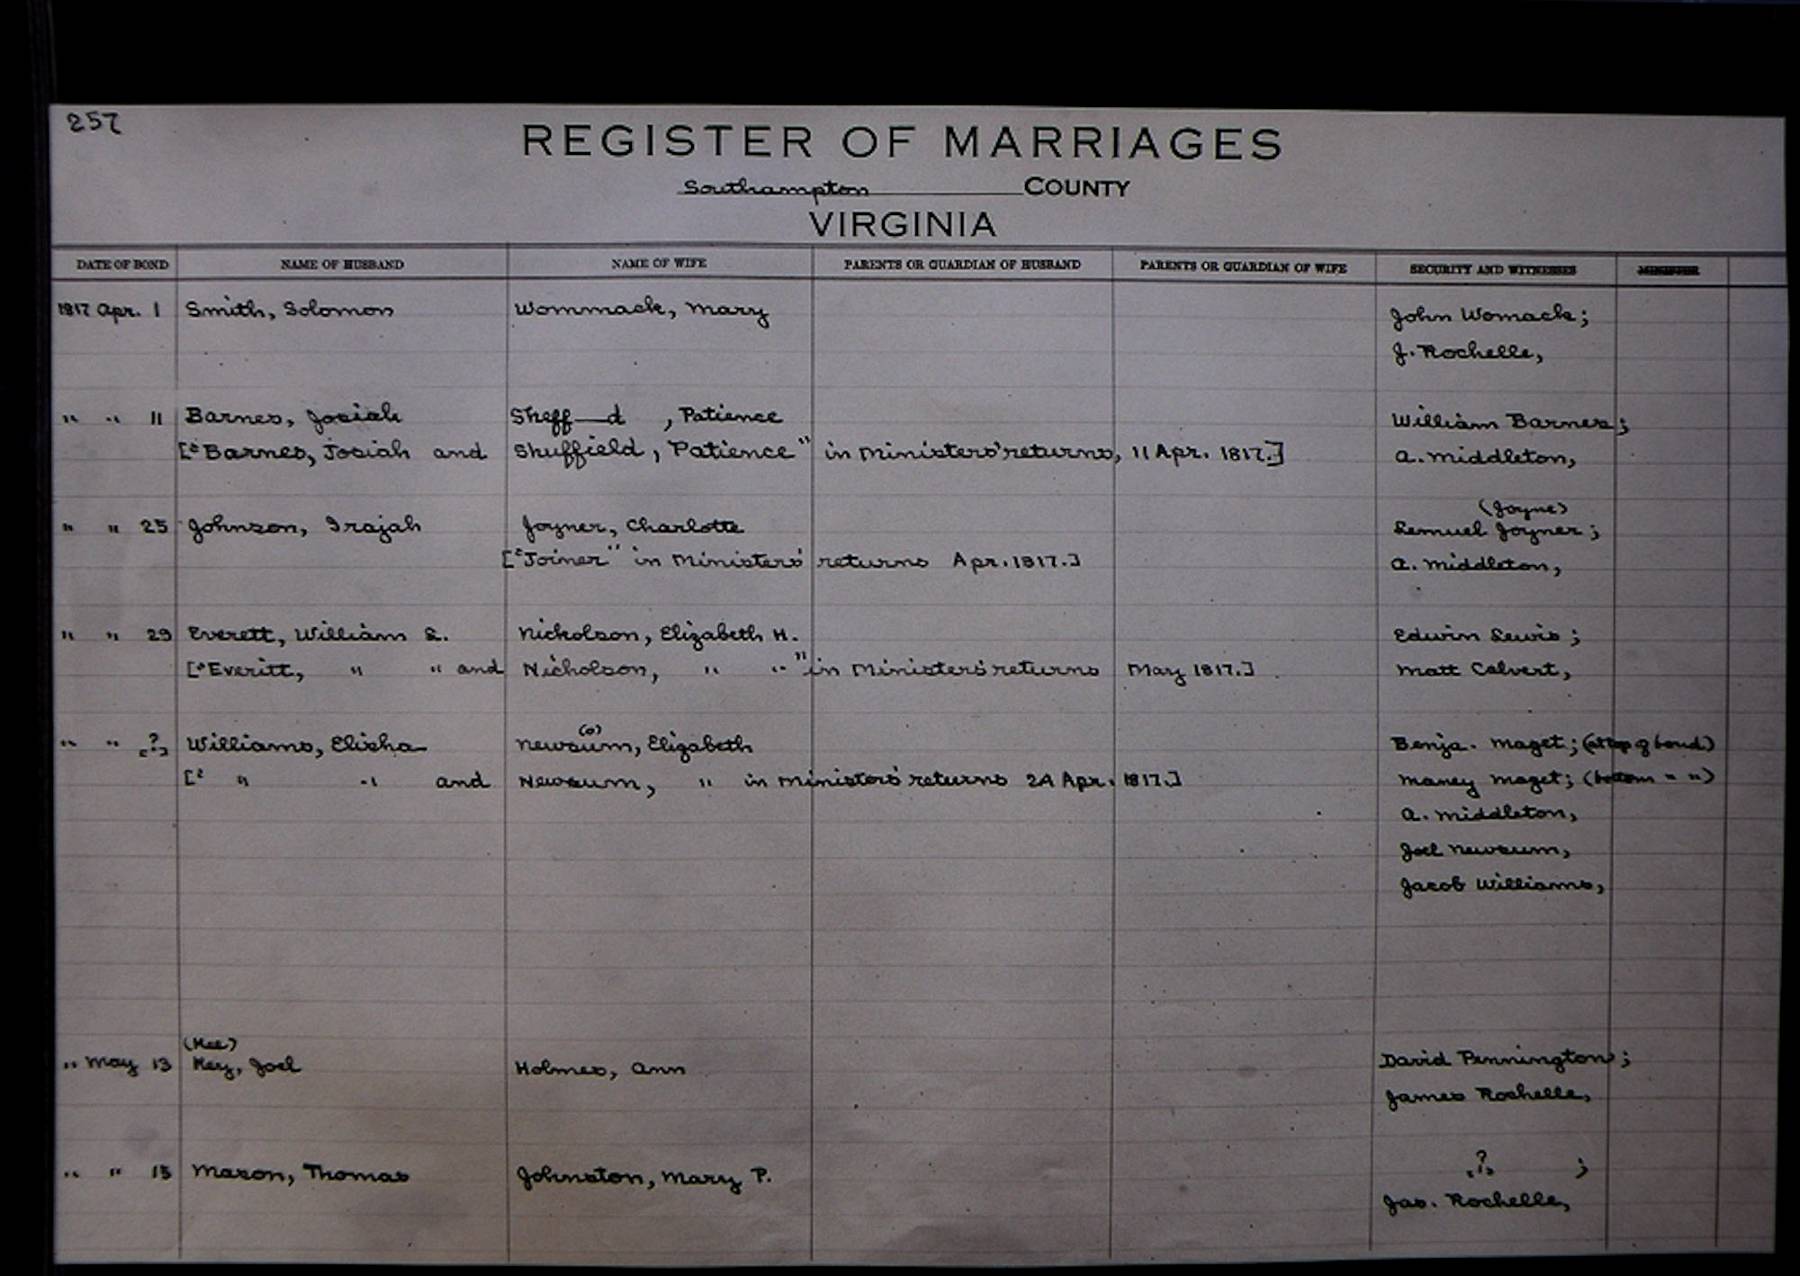 257
REGISTER OF MARRIAGES
Southampton COUNTY
VIRGINIA
DATE OF BOND NAME OF HUSBAND NAME OF WIFE PARENTS OR GUARDIAN OF HUSBAND PARENTS OR GUARDIAN OF WIFE SECURITY AND WITNESSES MINISTER
1817 Apr. 1 Smith, Solomon Wommack, Mary John Womack;
J. Rochelle,
" " 11 Barnes, Josiah Sheff—d , Patience William Barnes;
["Barnes, Josiah and Shuffield, Patience" in Ministers' returns, 11 Apr. 1817.] A. Middleton,
(Joyne)
" " 25 Johnson, Irajah Joyner, Charlotte Lemuel Joyner;
["Joiner" in Ministers' returns Apr. 1817.] A. Middleton,
" " 29 Everett, William L. Nickolson, Elizabeth H. Edwin Lewis;
["Everitt, " " and Nicholson, " " " in Ministers' returns May 1817.] Matt Calvert,
(o)
" " [?] Williams, Elisha Newsum, Elizabeth Benja. Maget; (at top of bond)
[" " " and Newsum, " in Ministers' returns 24 Apr. 1817.] Maney Maget; (bottom " ")
A. Middleton,
Joel Newsum,
Jacob Williams,
(Kee)
" May 13 Key, Joel Holmes, Ann David Pennington;
James Rochelle,
" " 15 Mason, Thomas Johnston, Mary P. [?] ;
Jas. Rochelle,